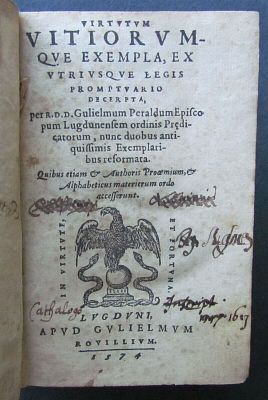 VIRTVTVM
VITIORVM-
QVE EXEMPLA, EX
VTRIVSQVE LEGIS
PROMPTVARIO
DECERPTA,
per R.D.D. Gulielmum Peraldum Episco-
pum Lugdunensem ordinis Prędi-
catorum, nunc duobus anti-
quissimis Exemplari-
bus reformata.
Quibus etiam & Authoris Proœmium, &
Alphabeticus materierum ordo
accesserunt.
IN VIRTVTE,
ET FORTVNA.
Cathalogo
LVGDVNI,
APVD GVLIELMVM
ROVILLIVM.
1574